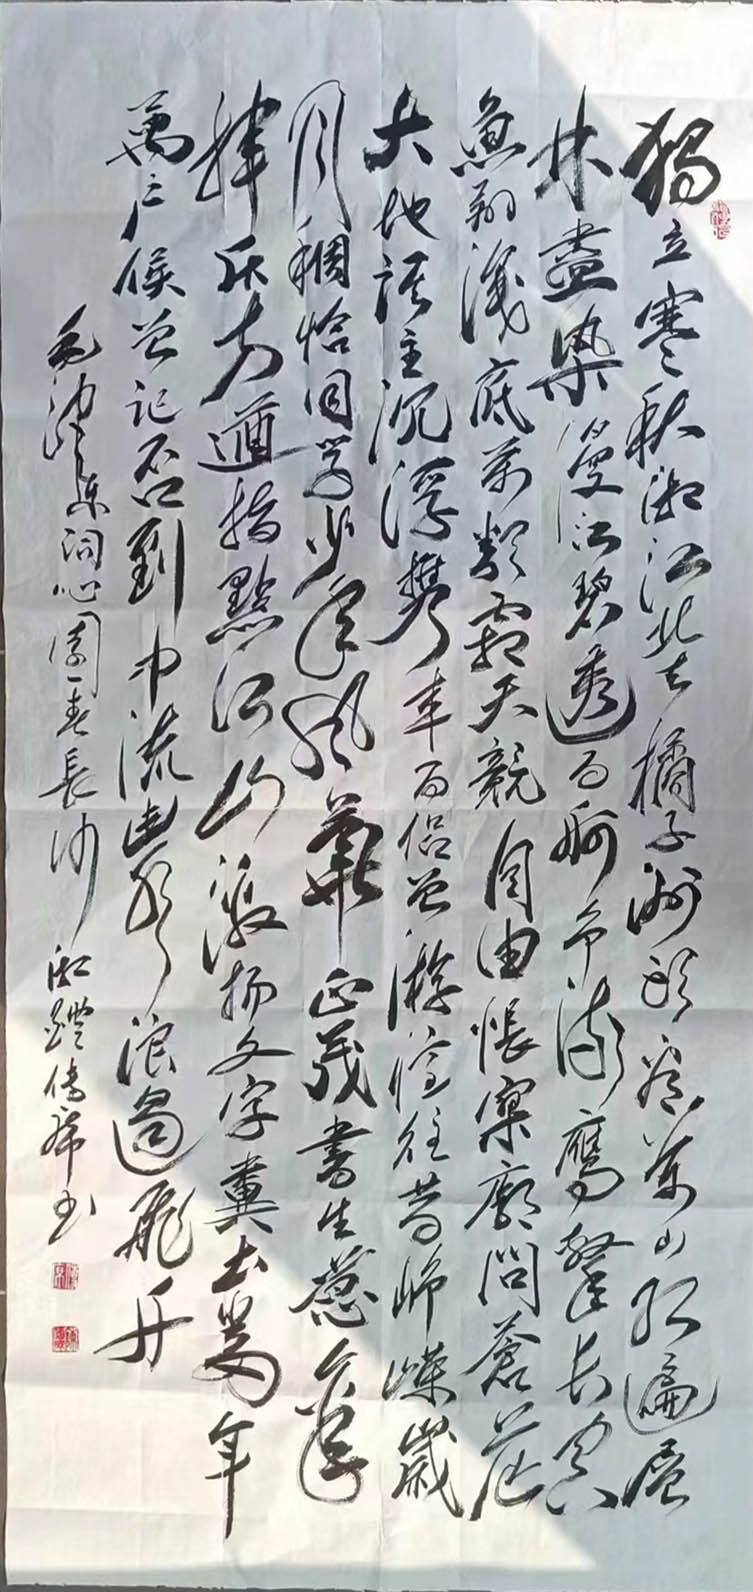 獨立寒秋湘江北去橘子洲頭看萬山红遍層
林盡染漫江碧透百舸争流鷹擊長空
魚翔淺底萬類霜天競自由悵寥廓問蒼茫
大地誰主沉浮攜來百侣曾游憶往昔崢嶸歲
月稠恰同學少年風華正茂書生意氣
揮斥方遒指點江山激揚文字糞土當年
萬户侯曾記否到中流擊水浪遏飛舟
毛澤東詞沁園春長沙 书